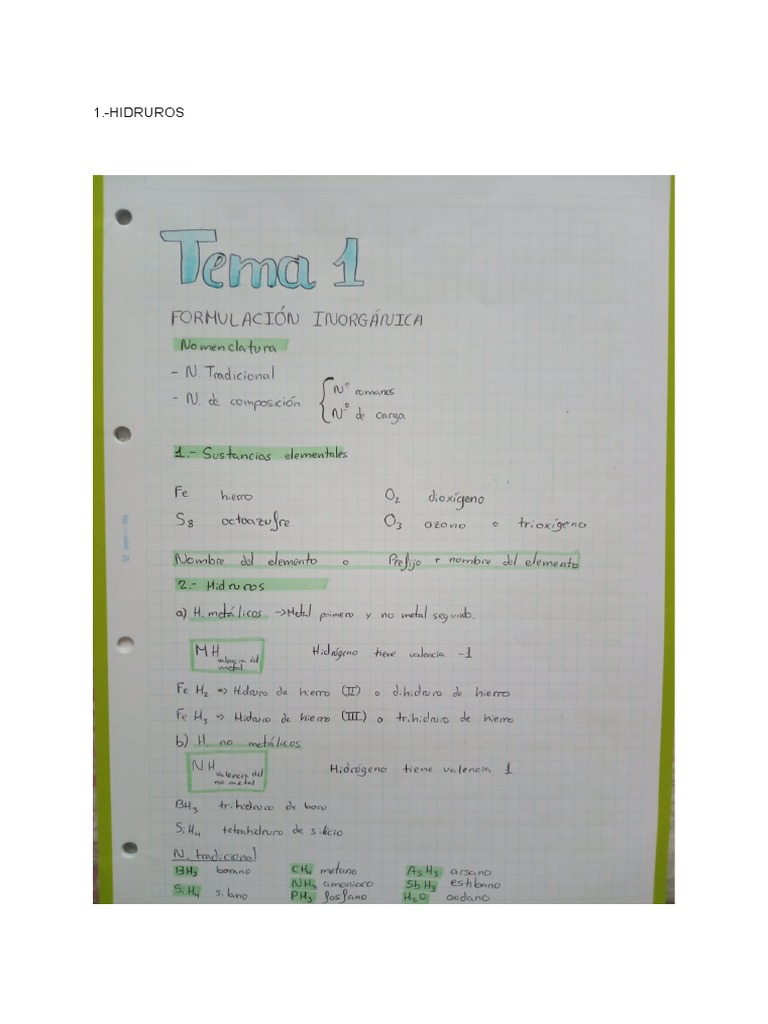 1.-HIDRUROS
Tema 1
FORMULACIÓN INORGÁNICA
Nomenclatura
- N. Tradicional
- N. de composición { Nº romanos
Nº de carga
1.- Sustancias elementales
Fe hierro O2 dioxígeno
S8 octoazufre O3 ozono o trioxígeno
Nombre del elemento o Prefijo + nombre del elemento
2.- Hidruros
a) H. metálicos → Metal primero y no metal segundo.
MH valencia del metal Hidrógeno tiene valencia -1
FeH2 => Hidruro de hierro (II) o dihidruro de hierro
FeH3 => Hidruro de hierro (III) o trihidruro de hierro
b) H. no metálicos
NH valencia del no metal Hidrógeno tiene valencia 1
BH3 trihidruro de boro
SiH4 tetrahidruro de silicio
N. tradicional
BH3 borano CH4 metano AsH3 arsano
SiH4 silano NH3 amoniaco SbH3 estibano
PH3 fosfano H2O oxidano